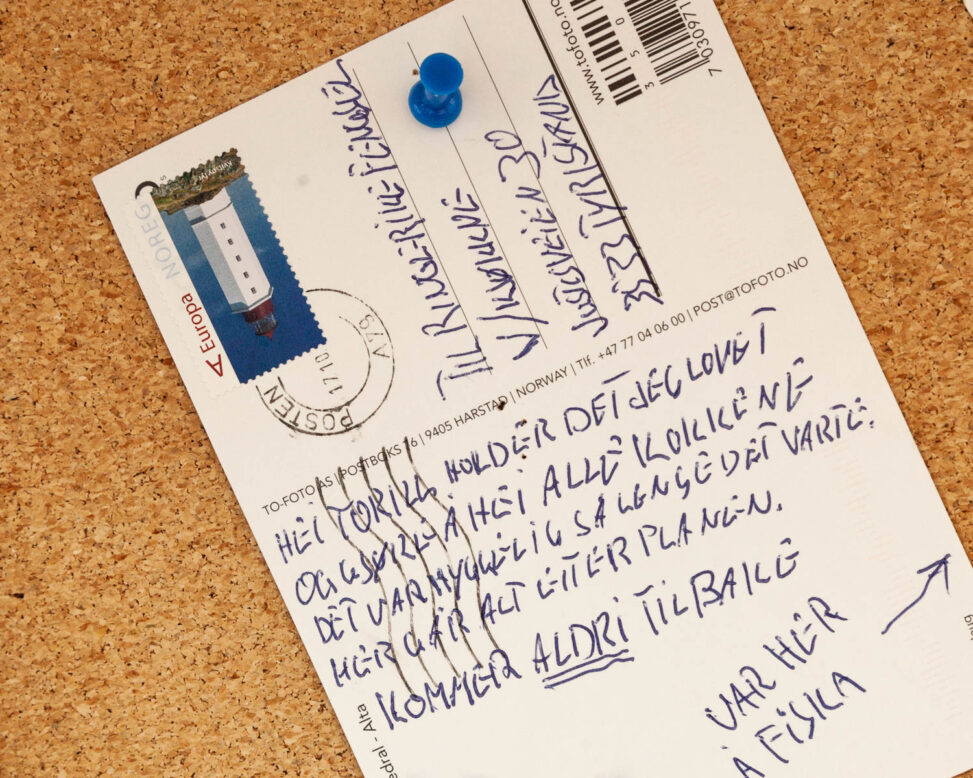 www.tofoto.no
NOREG
A Europa
POSTEN
17.10
TIL RINGERIKE FENGSEL
V/KJØKKENE
30
3533 TYRISTRAND
TO-FOTO AS | POSTBOKS | 9405 HARSTAD | NORWAY | Tlf. +47 77 04 06 00 | POST@TOFOTO.NO
HEI TORILL HOLDER DET JEG LOVET
OG Å HEI ALLE KOKKENE
DET VAR HYGGELIG SÅ LENGE DET VARTE.
HER GÅR ALT ETTER PLANEN.
KOMMER ALDRI TILBAKE
VAR HER
Å FISKA
edral - Alta